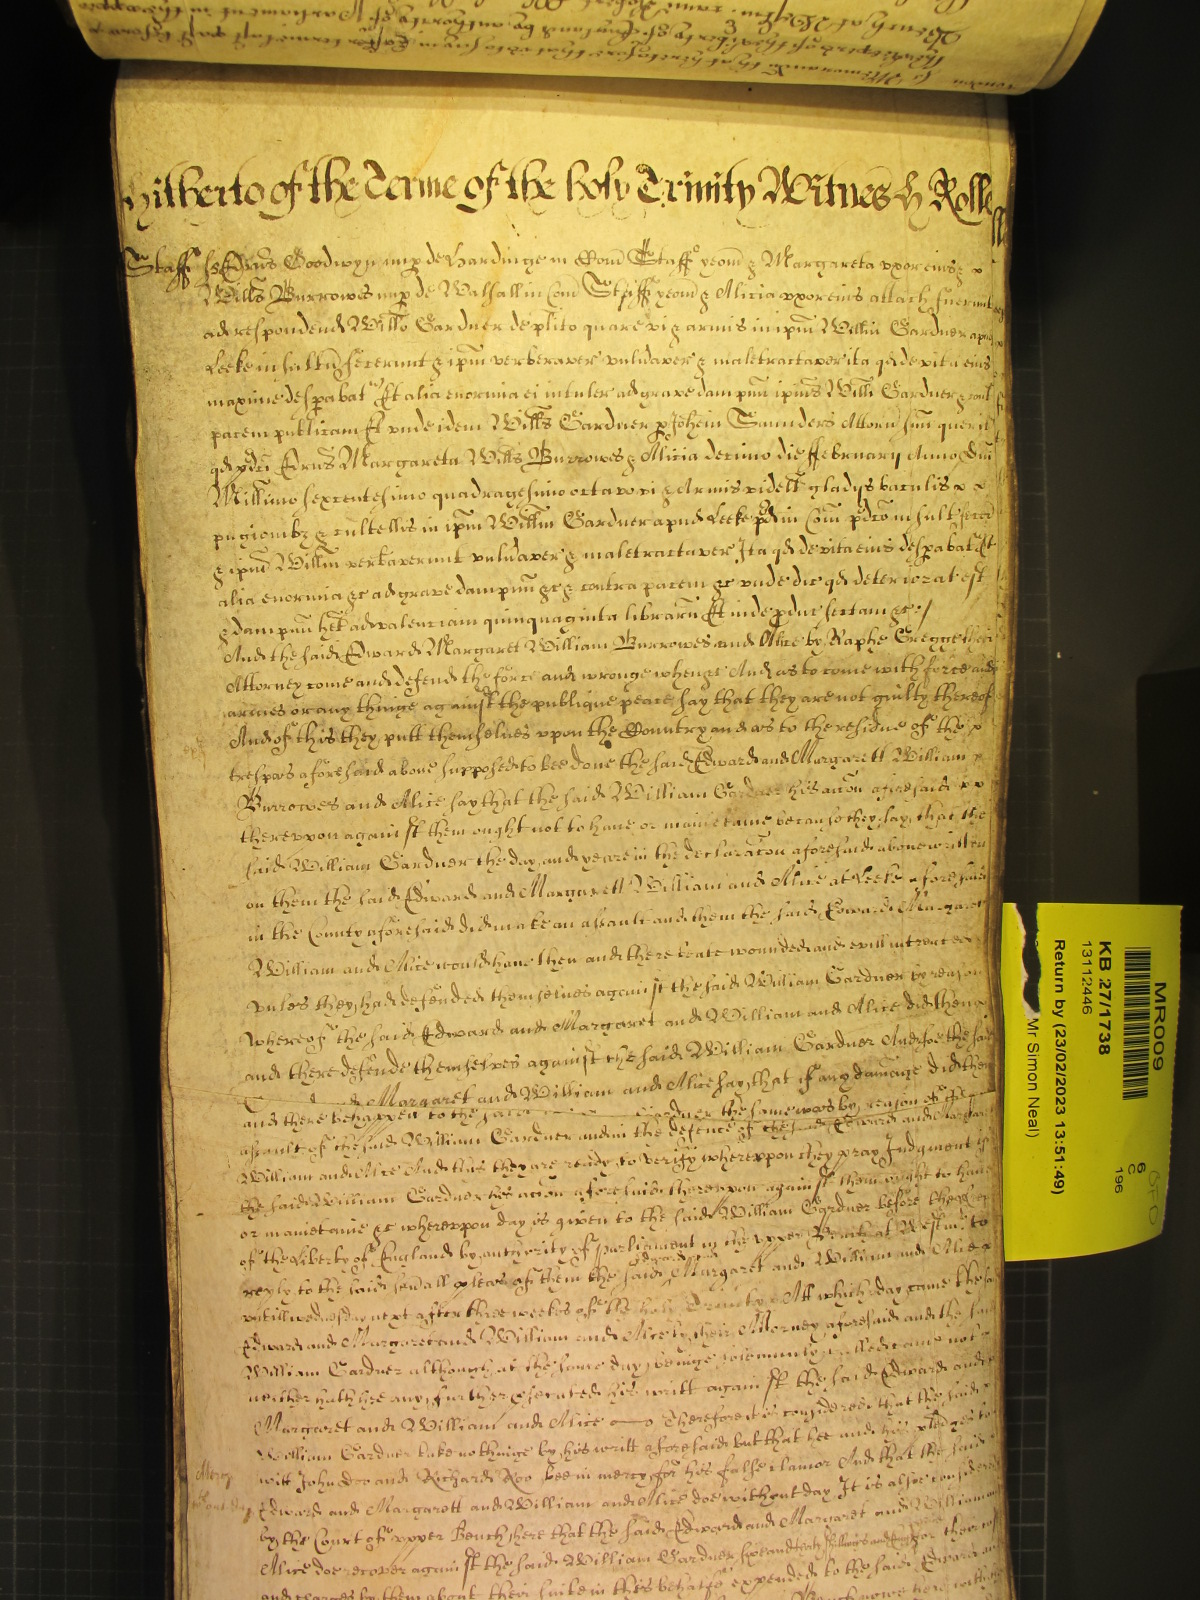 Hitherto of the Terme of the holy Trinity Witnes H Rolle
Staff ss Edrus Goodwyn nup de Hardinge in Com Staff yeom & Margareta uxor eius &
Willus Burrowes nup de Walsall in Com Staff yeom & Alicia uxor eius attach fuerunt
ad respondend Willo Gardner de plito quare vi & armis in ipm Willm Gardner apud
Leeke insultu fecerunt & ipm verberaver vulnaver & maletractaver ita qd de vita eius
maxime despabat Et alia enormia ei intuler ad grave dampnu ipius Willi Gardner & cont
pacem publicam Et unde idem Willus Gardner p Johem Saunders Attorn suu querit
qd pdci Edrus Margareta Willus Burrowes & Alicia decimo die ffebruarij Anno Dni
Millimo sexcentesimo quadragesimo octavo vi & armis videlt gladijs baculis
pugionibz & cultellis in ipm Willm Gardner apud Leeke pd in Com pdco insult fecer
& ipm Willm verberaverunt vulnaver & maletractaver Ita qd de vita eius despabat Et
alia enormia &c ad grave dampnu &c & contra pacem &c unde dic qd deteriorat est
& dampnu het ad valenciam quinquaginta librar Et inde pduc sectam &c
And the said Edward Margaret William Burrowes and Alice by Raphe Gregge their
Attorney come and defend the force and wronge when &c And as to come with force and
armes or any thinge against the publique peace say that they are not guilty thereof
And of this they putt themselves upon the Country and as to the residue of the
trespas aforesaid above supposed to bee done the said Edward and Margarett William
Burrowes and Alice say that the said William Gardner his accon aforesaid
thereupon against them ought not to have or mainetaine because they say that the
said William Gardner the day and yeare in the declaracon aforesaid above written
on them the said Edward and Margarett William and Alice at Leeke aforesaid
in the County aforesaid did make an assault and them the said Edward Margaret
William and Alice would have then and there beate wounded and evill intreated
unles they had defended themselves against the said William Gardner by reason
whereof the said Edward and Margaret and William and Alice did then
and there defende themselves against the said William Gardner And soe the said
Margaret and William and Alice say that if any damage did then
and there behappen to the said Gardner the same was by reason of the
assault of the said William Gardner and in the defence of the said Edward and Margaret
William and Alice And this they are ready to verify whereupon they pray Judgment if
the said William Gardner his accon aforesaid thereupon against them ought to have
or mainetaine &c whereupon day is given to the said William Gardner before the
of the Liberty of England by authority of parliament in the upper Bench at Westmr to
reply to the said severall pleas of them the said Edward Margaret and William and Alice
untill wednesday next after three weekes of the holy Trinity Att which day came the said
Edward and Margaret and William and Alice by their Attorney aforesaid and the said
William Gardner although at the same day beinge solemnly called came not
neither hath hee any further prosecuted his writt against the said Edward and
Margaret and William and Alice Therefore it is considered that the said
William Gardner take nothinge by his writt aforesaid but that hee and his pledges to
Mercy
witt John Doo and Richard Roo bee in mercy for his false clamor And that the said
without day
Edward and Margarett and William and Alice doe without day It is alsoe considered
by the Court of upper Bench here that the said Edward and Margaret and William and
Alice doe recover against the said William Gardner for their
and charges by them about their suite in this behalfe expended to the said Edward and
MR009
6
C
196
KB 27/1738
13112446
Return by (23/02/2023 13:51:49)
Mr Simon Neal)